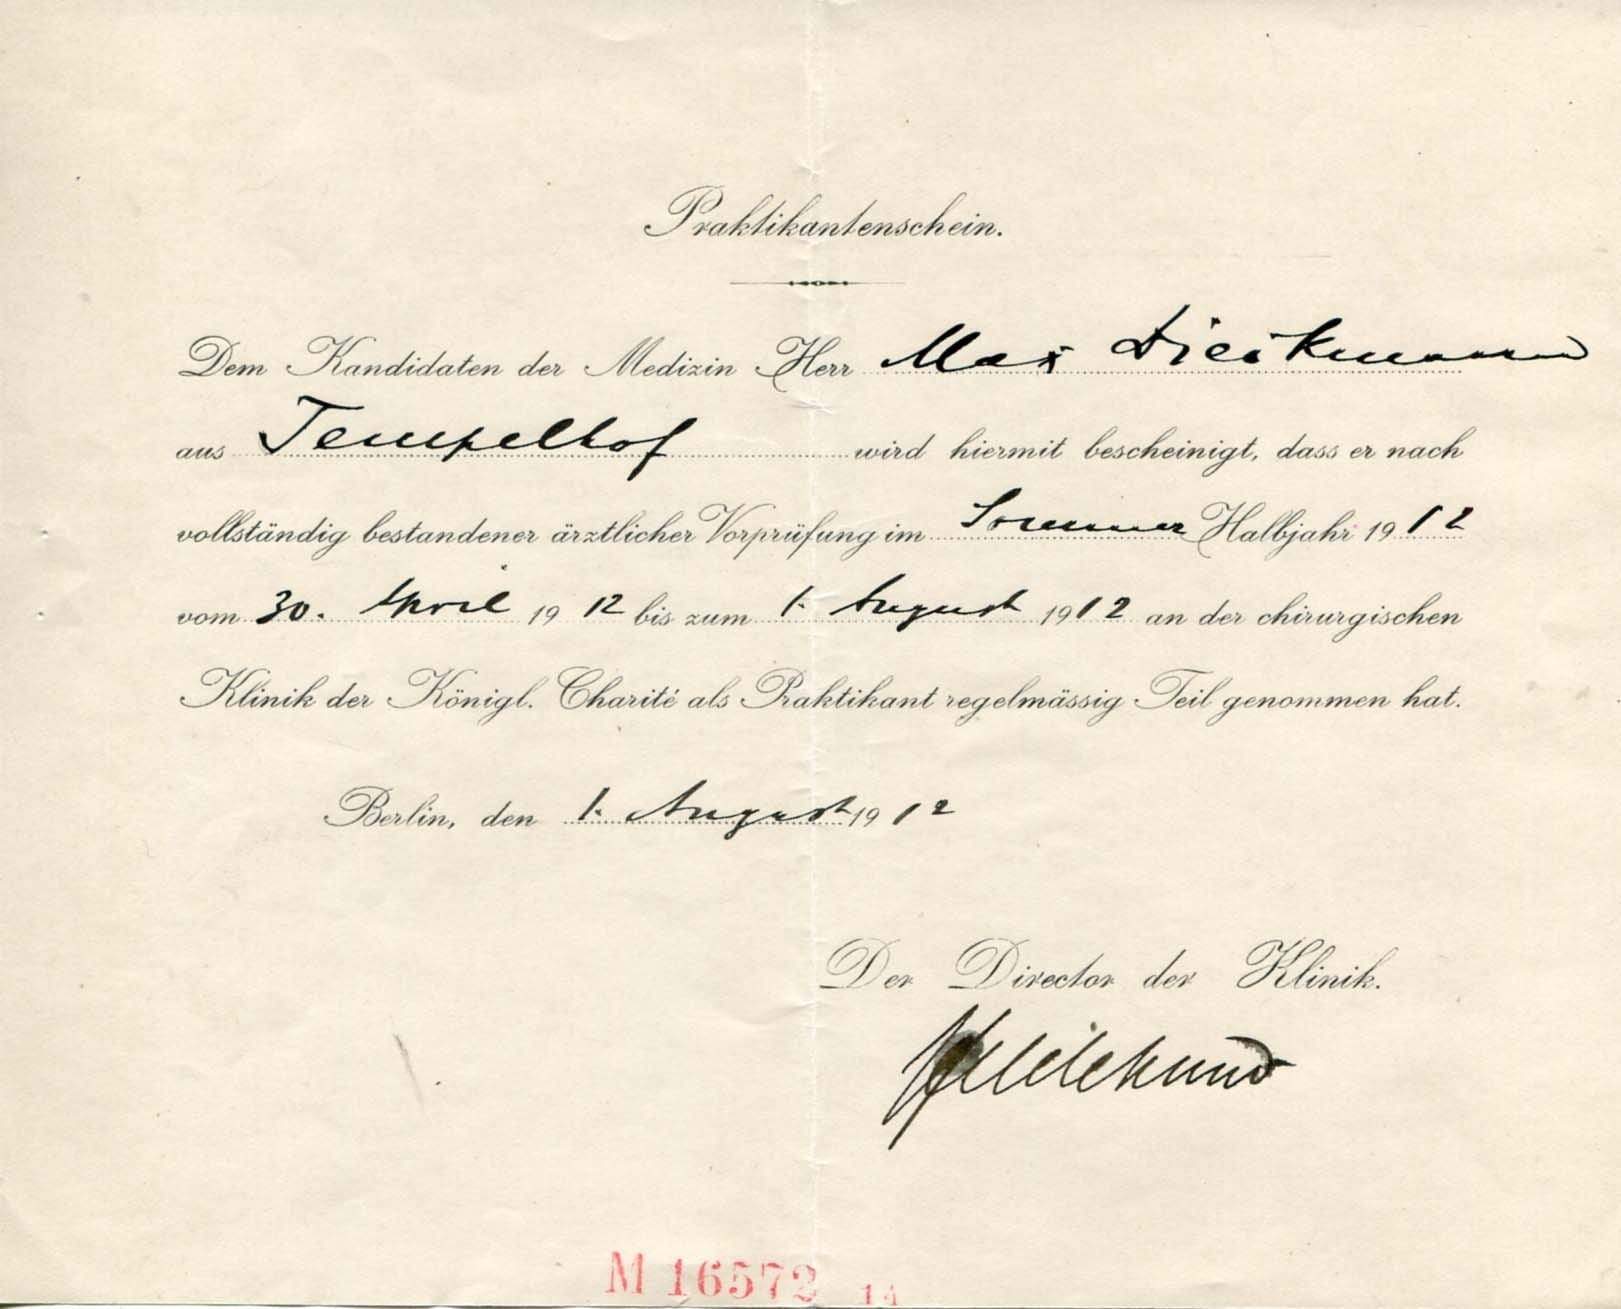 Praktikantenschein.
Dem Kandidaten der Medizin Herr Max Dieckmann
aus Tempelhof wird hiermit bescheinigt, dass er nach
vollständig bestandener ärztlicher Vorprüfung im Sommer Halbjahr 1912
vom 30. April 1912 bis zum 1. August 1912 an der chirurgischen
Klinik der Königl. Charité als Praktikant regelmässig Teil genommen hat.
Berlin, den 1. August 1912
Der Director der Klinik.
Hildebrand
M 16572 14